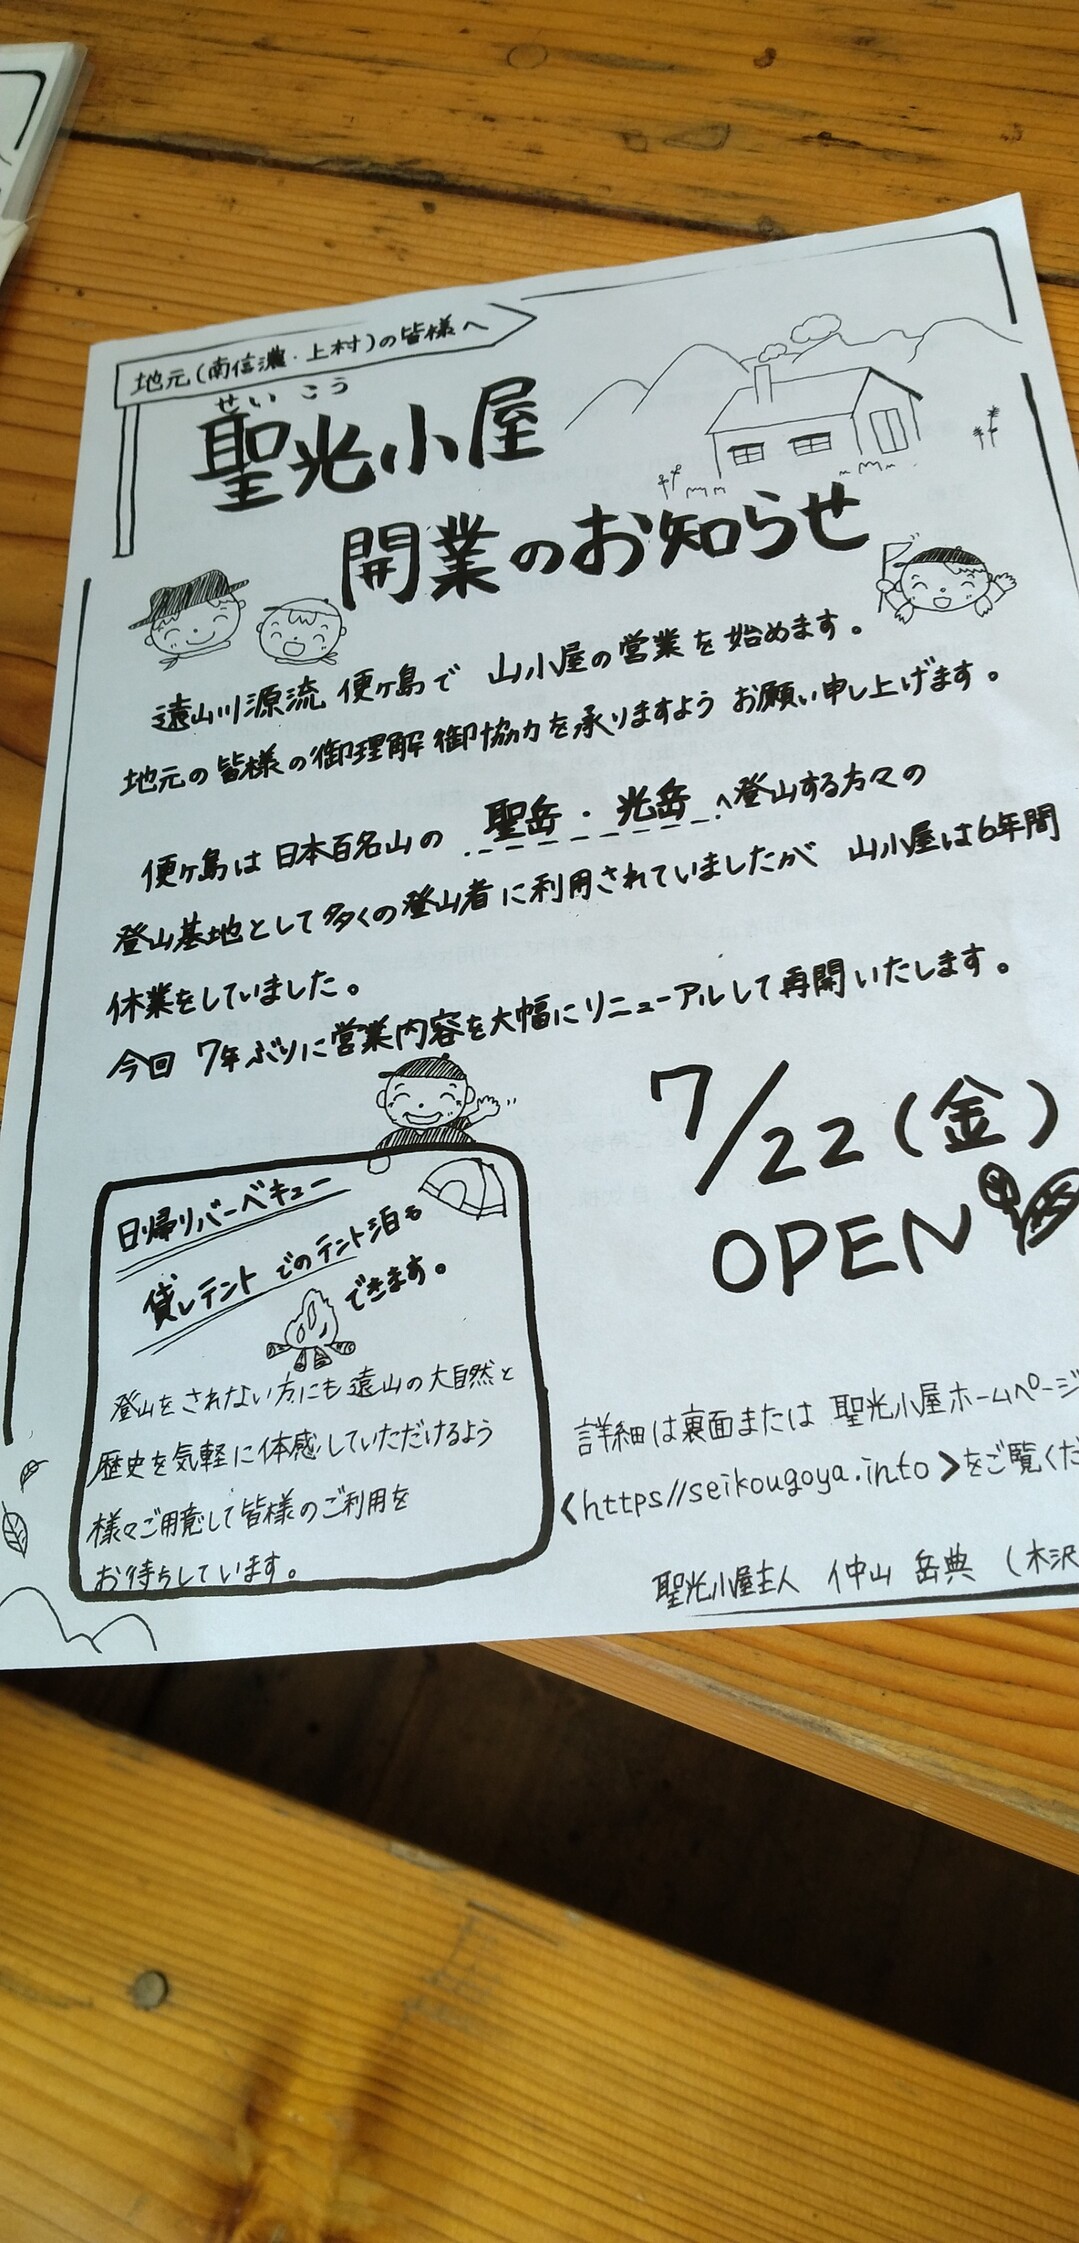 地元(南信濃・上村)の皆様へ
せい こう
聖光小屋
開業のお知らせ
遠山川源流 便ヶ島で 山小屋の営業を始めます。
地元の皆様の御理解御協力を承りますよう お願い申し上げます。
便ヶ島は日本百名山の 聖岳・光岳へ登山する方々の
登山基地として多くの登山者に利用されていましたが 山小屋は6年間
休業をしていました。
今回 7年ぶりに営業内容を大幅にリニューアルして再開いたします。
7/22(金)
OPEN
日帰りバーベキュー
貸しテントでのテント泊も
できます。
登山をされない方にも遠山の大自然と
歴史を気軽に体感していただけるよう
様々ご用意して皆様のご利用を
お待ちしています。
詳細は裏面または 聖光小屋ホームページ
<https//seikougoya.info>をご覧くだ
聖光小屋主人 仲山 岳典 (木沢